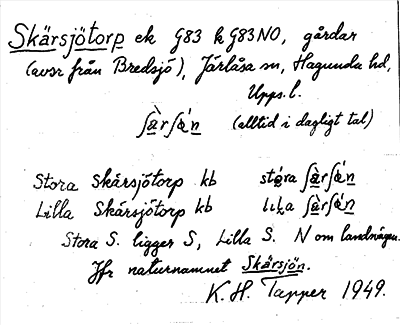 Skärsjötorp ek G83 k G83NO, gårdar
(avsr från Bredsjö), Järlåsa sn, Hagunda hd,
Upps. l.
ʃà̱rʃà̱n (alltid i dagligt tal)
Stora Skärsjötorp kb stó̱ra ʃà̱rʃà̱n
Lilla Skärsjötorp kb lıḷa ʃà̱rʃà̱n
Stora S. ligger S, Lilla S. N om landsvägen.
Jfr naturnamnet Skärsjön.
K. H. Tapper 1949.